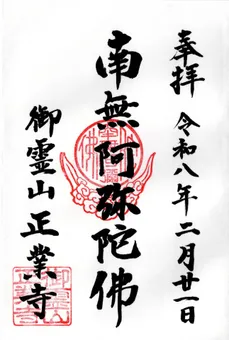 奉拝 令和八年二月廿一日
南無阿弥陀佛
御霊山正業寺